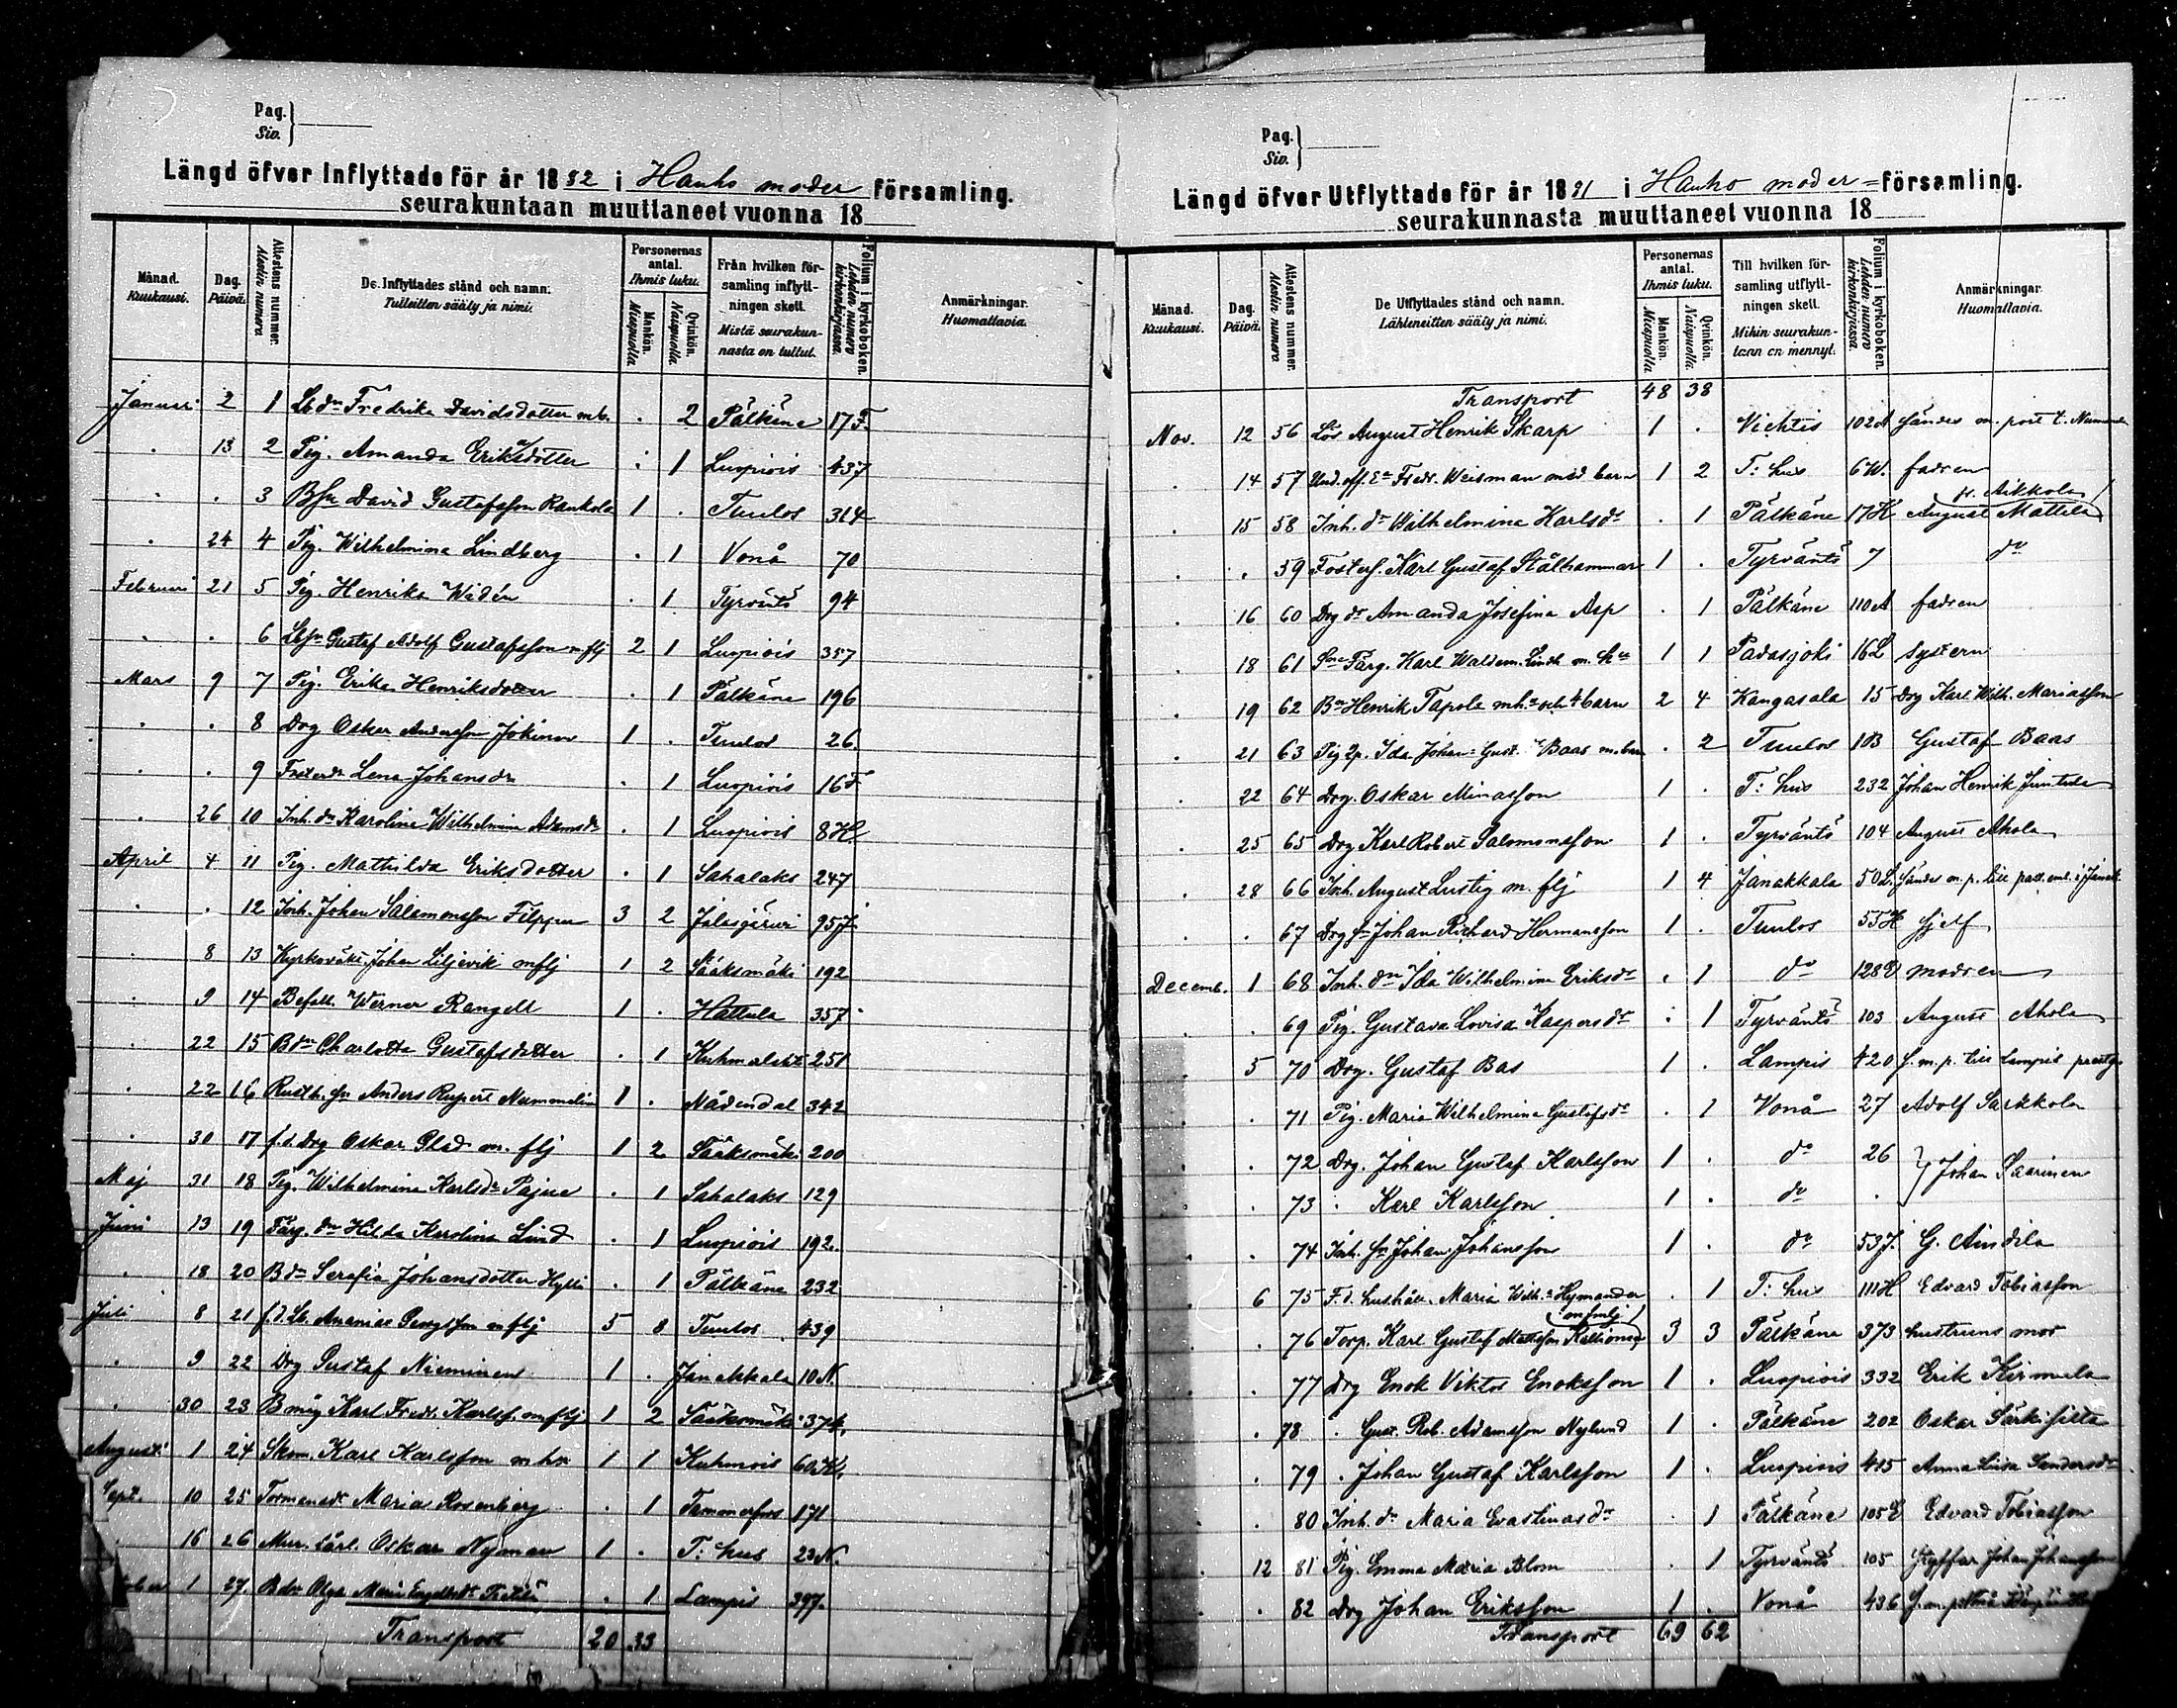 Pag.
Siv.
Längd öfver Inflyttade för år 1882 i Hauho moder församling.
seurakuntaan muuttaneet vuonna 18
Månad. Kuukausi.
Dag. Päivä.
Attestens nummer. Alestin numero
De Inflyttades stånd och namn.
Tulleitten sääty ja nimi.
Personernas antal. Ihmis luku.
Mankön. Miespuolia
Qvinkön. Naispuolia
Från hvilken församling inflyttningen skett.
Mistä seurakunnasta on tullut.
Folium i kyrkoboken. Lehden numero kirkonkirjassa.
Anmärkningar.
Huomattavia.
Januari 2 1 Lbdr Fredrika Davidsdotter mb. . 2 Pälkäne 17F.
. 13 2 Pig. Amanda Eriksdotter . 1 Luopiois 437
. . 3 Bsn David Gustafsson Raukola 1 . Tuulos 314
. 24 4 Pig. Wilhelmina Lindberg . 1 Vonå 70
Februari 21 5 Pig. Henrika Widén . 1 Tyrväntö 94
. . 6 Lbsn Gustaf Adolf Gustafsson m flj 2 1 Luopiois 357
Mars 9 7 Pig. Erika Henriksdotter . 1 Pälkäne 196
. . 8 Drg Oskar Andersson Jokinen 1 . Tuulos 26.
. . 9 Lena Johansdr . 1 Luopiois 16F
. 26 10 Inh. dr Karolina Wilhelmina Adamsdr . 1 Luopiois 8H.
April 4 11 Pig. Mathilda Eriksdotter . 1 Sahalaks 247
. . 12 Inh. Johan Salomonsson Filppu 3 2 Jalasjärvi 95J
. 8 13 Kyrkovakt. Johan Liljevik mflj 1 2 Sääksmäki 192
. 9 14 Befallm. Werner Rangell 1 . Hattula 357
. 22 15 Bdr Charlotta Gustafsdotter . 1 Kuhmalaks 251
. 22 16 Rusth. sn Anders Rupert Nummelin 1 . Nådendal 342
. 30 17 f.d. Drg Oskar Glad m. flj 1 2 Sääksmäki 200
Maj 31 18 Pig. Wilhelmina Karlsdr Pajue . 1 Sahalaks 129
Juni 13 19 Färg. dr Hilda Karolina Lind . 1 Luopiois 192.
. 18 20 Bdr Serafia Johansdotter Hylli . 1 Pälkäne 232
Juli 8 21 f.d. Lb. Ananias Georgsson mflj 5 8 Tuulos 439
. 9 22 Drg Gustaf Nieminen 1 . Janakkala 10N.
. 30 23 Bmåg Karl Fredr. Karlss. m flj 1 2 Sääksmäki 374.
Augusti 1 24 Skom. Karl Karlsson m hu 1 1 Kuhmois 60K.
Sept. 10 25 Maria Rosenberg . 1 Tammerfors 171
16 26 Mur. lärl. Oskar Nyman 1 . T: hus 23N.
tober 1 27 Bdr Olga Maria . 1 Lampis 397.
Transport 20 33
Pag.
Siv.
Längd öfver Utflyttade för år 1881 i Hauho moder=församling.
seurakunnasta muuttaneet vuonna 18
Månad. Kuukausi.
Dag. Päivä.
Attestens nummer. Alestin numero
De Utflyttades stånd och namn.
Lähteneitten sääty ja nimi.
Personernas antal. Ihmis luku.
Mankön. Miespuolia
Qvinkön. Naispuolia
Till hvilken församling utflyttningen skett.
Mihin seurakuntaan on mennyt.
Folium i kyrkoboken. Lehden numero kirkonkirjassa.
Anmärkningar.
Huomattavia.
Transport 48 38
Nov. 12 56 Lös August Henrik Skarp 1 . Vichtis 102A sändes m. post t.
. 14 57 Und. off. Ea Fredr. Weisman med barn 1 2 T: hus 6W. fadren
. 15 58 Inh. dr Wilhelmina Karlsdr . 1 Pälkäne 17K August Mattila
. . 59 Fosters. Karl Gustaf Stålhammar 1 . Tyrväntö 7 do
. 16 60 Drg dr Amanda Josefina Asp . 1 Pälkäne 110A fadren
. 18 61 Färg. Karl Waldem. Lindh m. hu 1 1 Padasjoki 16L systern
. 19 62 Bn Henrik Tapola m hu och 4 barn 2 4 Kangasala 15 Drg Karl Wilh. Mariasson
. 21 63 Pig Qp. Ida Johan: Gust. Baas m. barn . 2 Tuulos 1B Gustaf Baas
. 22 64 Drg. Oskar Minasson 1 . T: hus 232 Johan Henrik Juntula
. 25 65 Drg Karl Robert Salomonsson 1 . Tyrväntö 104 August Ahola
. 28 66 Inh. August Lustig m. flj 1 4 Janakkala 50L. sändes m. p. till past. emb. i Janak.
. . 67 Drg sn Johan Richard Hermansson 1 . Tuulos 55H sjelf
Decemb. 1 68 Inh. dr Ida Wilhelmina Eriksdr . 1 do 128D modren
. . 69 Pig. Gustava Lovisa Kaspersdr . 1 Tyrväntö 103 August Ahola
. 5 70 Drg. Gustaf Bas 1 . Lampis 420 s. m. p. till Lampis prestg.
. . 71 Pig. Maria Wilhelmina Gustafsdr . 1 Vonå 27 Adolf Sarkkola
. . 72 Drg. Johan Gustaf Karlsson 1 . do 26 } Johan Saarinen
. . 73 . Karl Karlsson 1 . do .
. . 74 Inh. sn Johan Johansson 1 . do 53J. G. Aindila
. 6 75 F.d. hushåll. Maria Wilh:a Hymander . 1 T: hus 111H Edvard Tobiasson
. . 76 Torp. Karl Gustaf Mattsson Kallionen m famlj 3 3 Pälkäne 373 hustruns mor
. . 77 Drg Enok Viktor Enoksson 1 . Luopiois 332 Erik Kirmula
. . 78 . Gust. Rob. Adamsson Nylund 1 . Pälkäne 202 Oskar Särkisilta
. . 79 . Johan Gustaf Karlsson 1 . Luopiois 415 Anna Lisa Sandersdr
. . 80 Inh. dr Maria Evastinasdr . 1 Pälkäne 105E Edvard Tobiasson
. 12 81 Pig. Emma Maria Blom . 1 Tyrväntö 105 Johan Johansson
. . 82 Drg Johan Eriksson 1 . Vonå 436
Transport 69 62